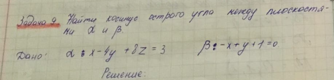 Задача 9. Найти косинус острого угла между плоскостя-
ми α и β.
Дано: α: x-4y+8z=3 β: -x+y+1=0
Решение: